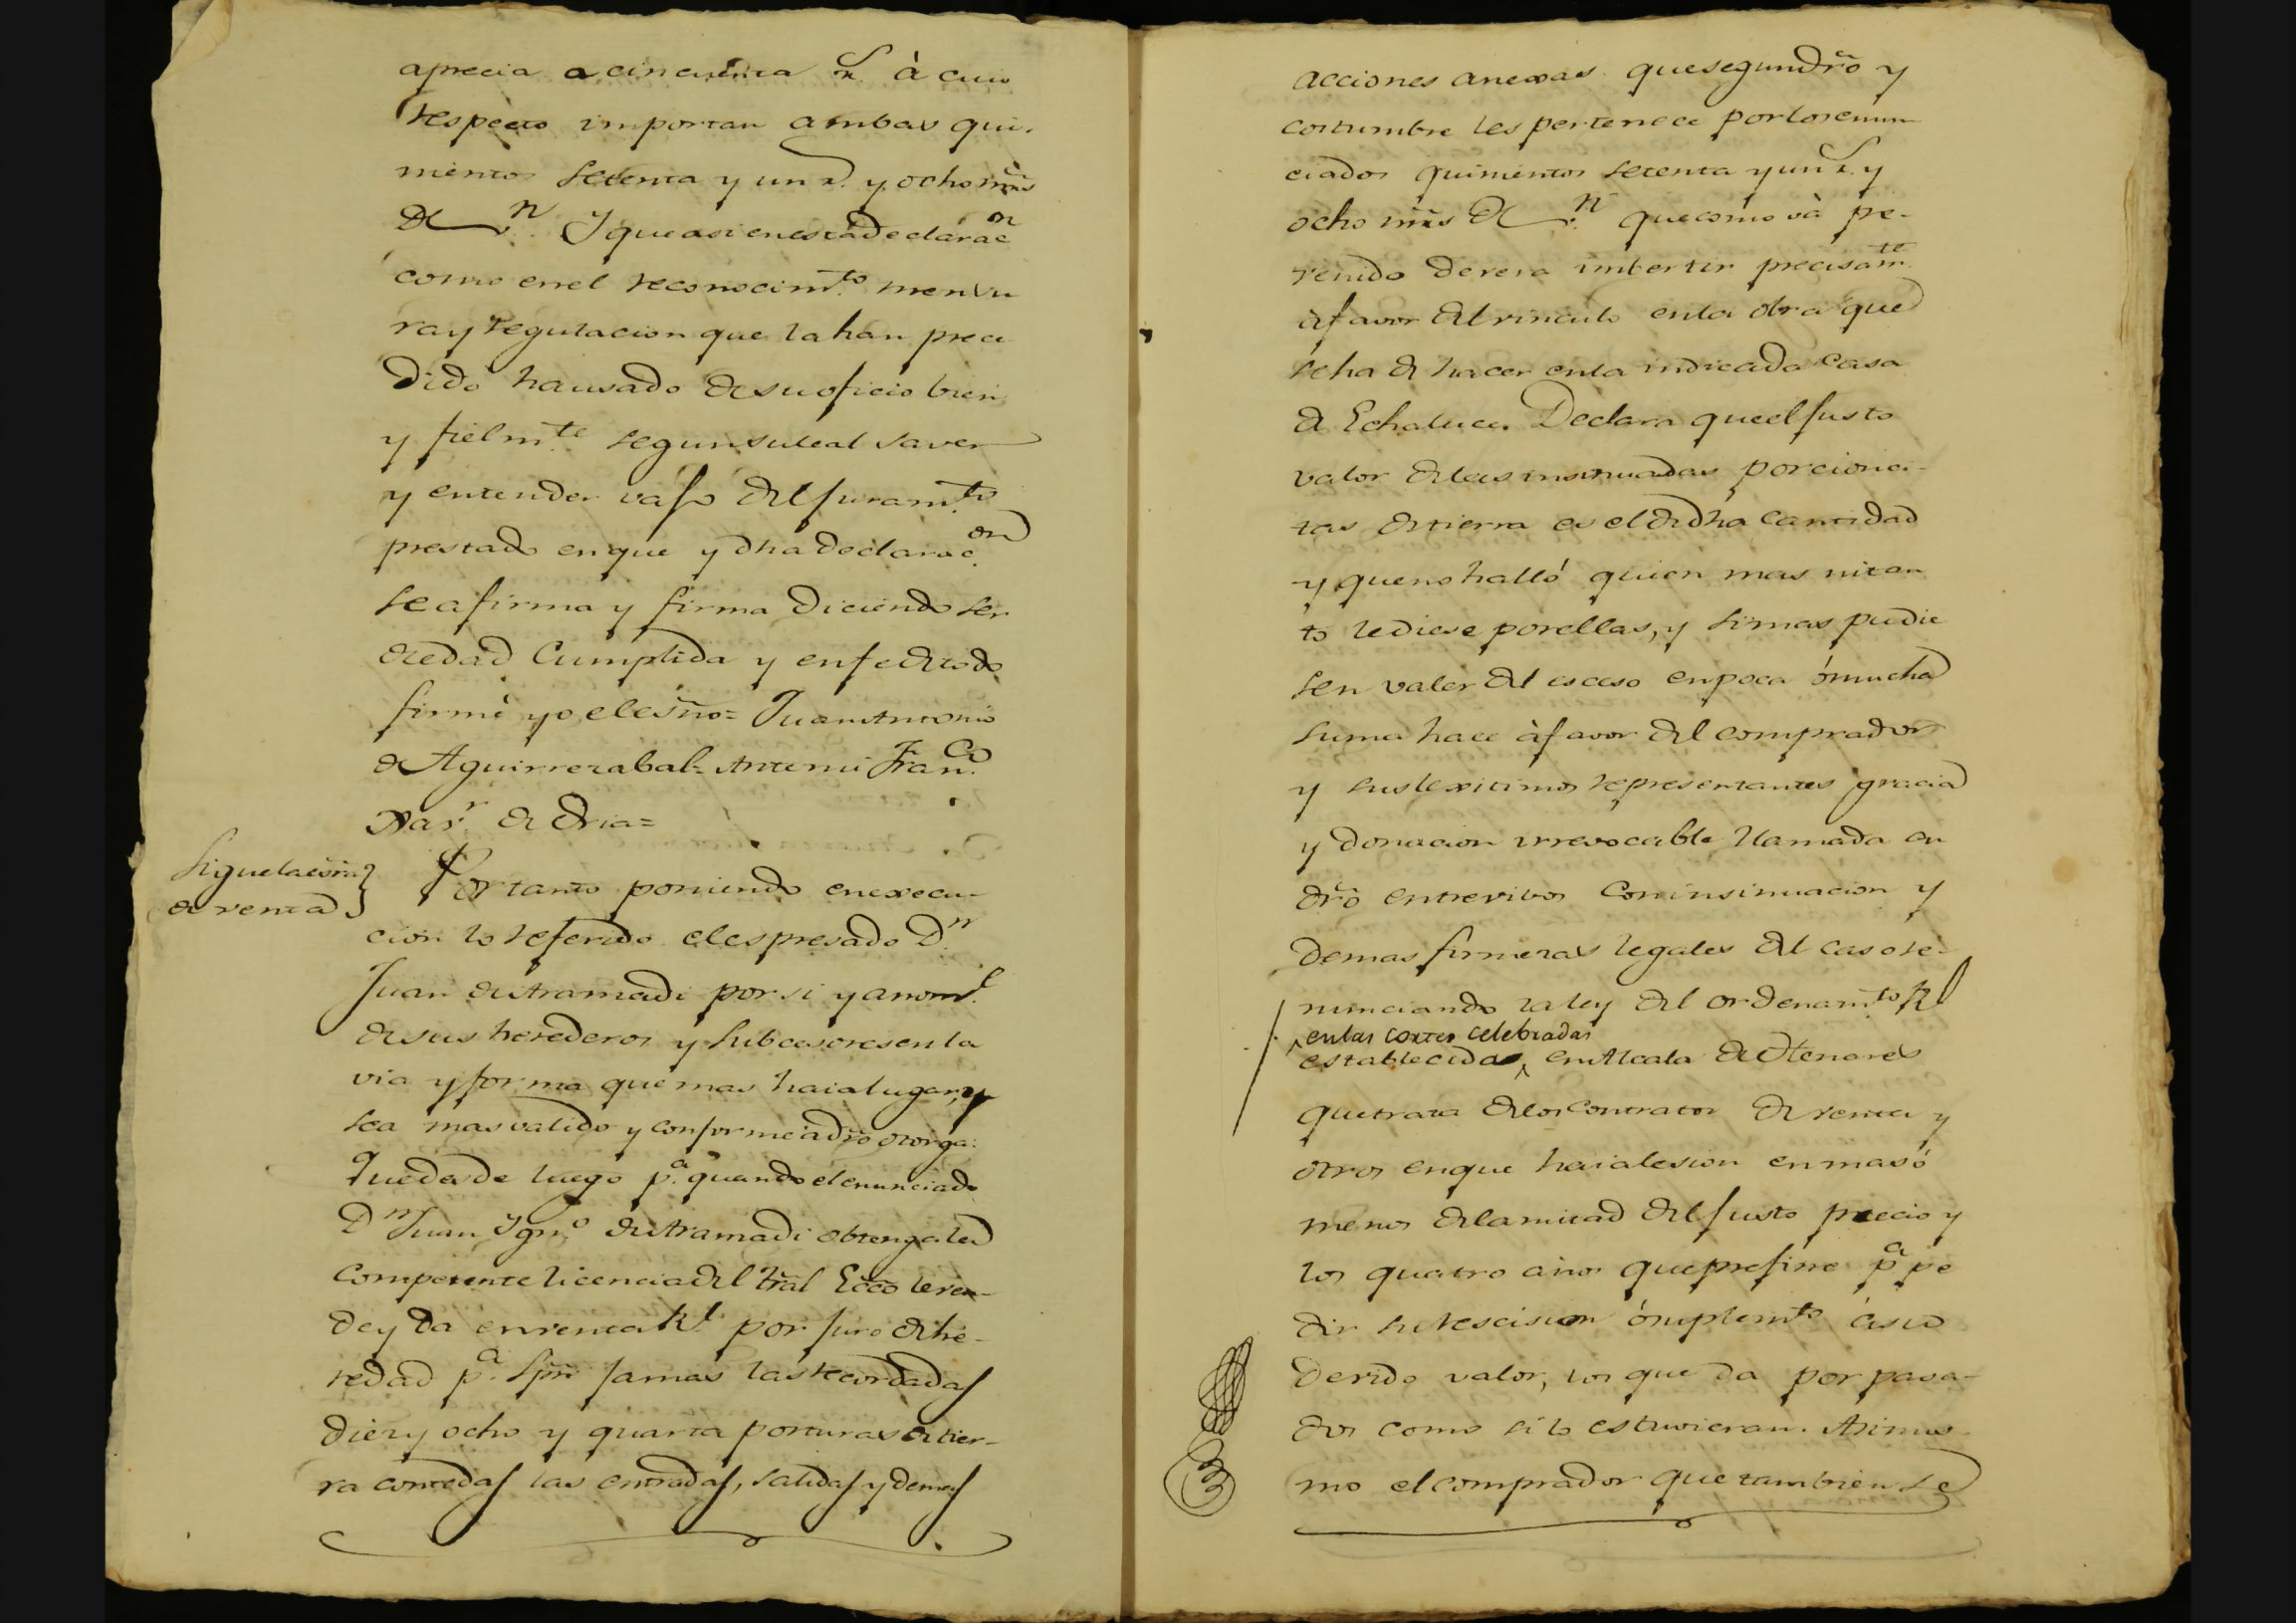 aprecia a cincuenta r.^s à cuio
respecto importan ambas qui-
nientos setenta y un r.^s y ocho mr̃s
de v.^n Y que asi en esta declarac^on
como en el reconocim.^to mensu
ra y regulacion que la han prece
dido ha usado de su oficio bien
y fielm.^te segun su leal saver
y entender vajo del juram.^to
prestado en que y dha declarac.^on
se afirma y firma diciendo ser
de edad cumplida y en fe de todo
firmè yo el esño= Juan Antonio
de Aguirrezabal= Ante mi Fran.^co
Xav.^r de Oria=
Sigue la esrra
de venta
Por tanto poniendo en execu-
cion lo referido el espresado D.^n
Juan de Aramadi por si y a nom.^e
de sus herederos y subcesores en la
via y forma que mas haia lugar, y
sea mas valido y conforme a dr̃o otorga:
Que desde luego p.^a quando el enunciado
D^n Juan Ygn.^o de Aramadi obtenga la
competente licencia del tr̃al Ecc̃o le ven-
de y da en venta R.^l por juro de he-
redad p.^a spr̃e jamas las recordadas
diez y ocho y quarta posturas de tier-
ra con todas las entradas, salidas y demas
acciones anexas que segun dr̃o y
costumbre les pertenece por los enun
ciados quinientos setenta y un r.^s y
ocho mr̃s de v.^n que como và pre-
venido deverá imbertir precisam.^te
à favor del vinculo en la obra que
se ha de hacer en la indicada Casa
de Echaluce. Declara que el justo
valor de las insinuadas porcionci-
tas de tierra es el de dha cantidad
y que no halló quien mas ni tan
to le diese por ellas, y si mas pudie
sen valer del esceso en poca ó mucha
suma hace à favor del comprador
y sus lexitimos representantes gracia
y donacion irrevocable llamada en
dr̃o entre vivos con insinuacion y
demas firmezas legales del caso re-
nunciando la ley del ordenam.^to R^l
en las cortes celebradas
establecida en Alcala de Henares
que trata de los contratos de venta y
otros en que haia lesion en mas ó
menos de la mitad del justo precio y
los quatro años que prefine p.^a pe
dir su rescision ó suplem.^to à su
devido valor, los que da por pasa-
dos como si lo estuvieran. Asimis
mo el comprador que tambien se